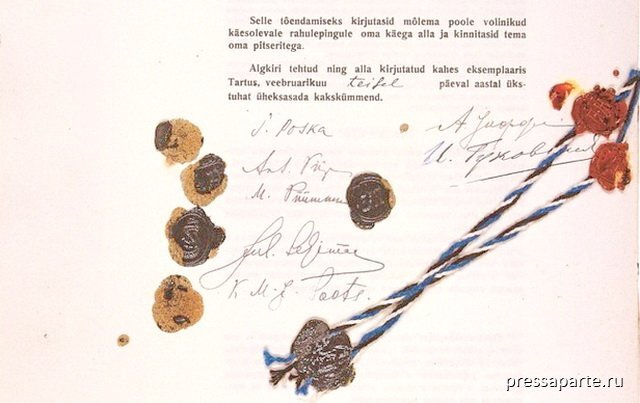 Selle tõendamiseks kirjutasid mõlema poole volinikud
käesolevale rahulepingule oma käega alla ja kinnitasid tema
oma pitseritega.
Algkiri tehtud ning alla kirjutatud kahes eksemplaaris
Tartus, veebruarikuu teisel päeval aastal üks-
tuhat üheksasada kakskümmend.
J. Poska
А. Иоффе
Ant. Piip
И. Гуковский
M. Püümann
Jul. Seljamaa
pressaparte.ru